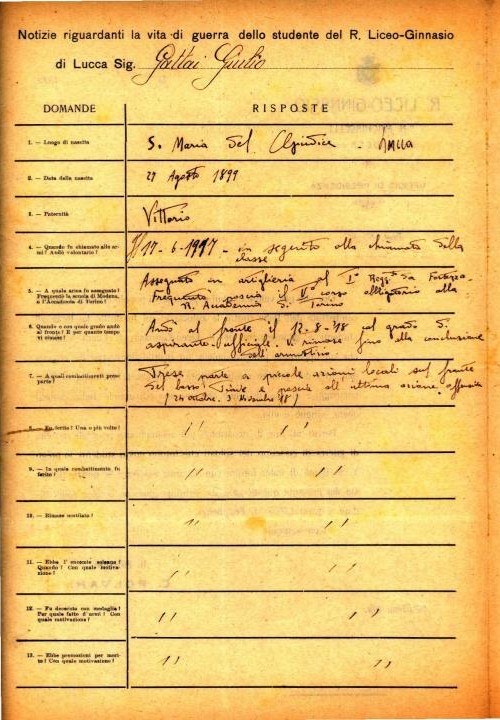 Notizie riguardanti la vita di guerra dello studente del R. Liceo-Ginnasio
di Lucca Sig. Gattai Giulio
DOMANDE RISPOSTE
1. — Luogo di nascita S. Maria del Giudice - Lucca
2. — Data della nascita 27 Agosto 1899
3. — Paternità Vittorio
4. — Quando fu chiamato alle armi? Andò volontario? Il 17-6-1917 - in seguito alla chiamata della
classe
5. — A quale arma fu assegnato? Assegnato in artiglieria al 1° Regg. da Fortezza.
Frequentò la scuola di Modena, Frequentò poscia il V° corso obbligatorio alla
o l'Accademia di Torino? R. Accademia di Torino
6. — Quando e con quale grado andò Andò al fronte il 12-8-'18 col grado di
al fronte? E per quanto tempo aspirante ufficiale. Vi rimase fino alla conclusione
vi rimase? dell'armistizio
7. — A quali combattimenti prese Prese parte a piccole azioni locali sul fronte
parte? del basso Piave e poscia all'ultima azione offensiva
(24 ottobre. 3 Novembre '18)
8. — Fu ferito? Una o più volte? " "
9. — In quale combattimento fu
ferito? " "
10. — Rimase mutilato? " "
11. — Ebbe l'encomio solenne?
Quando? Con quale motiva-
zione? " "
12. — Fu decorato con medaglia?
Per quale fatto d'armi? Con
quale motivazione? " "
13. — Ebbe promozioni per meri-
to? Con quale motivazione? " "